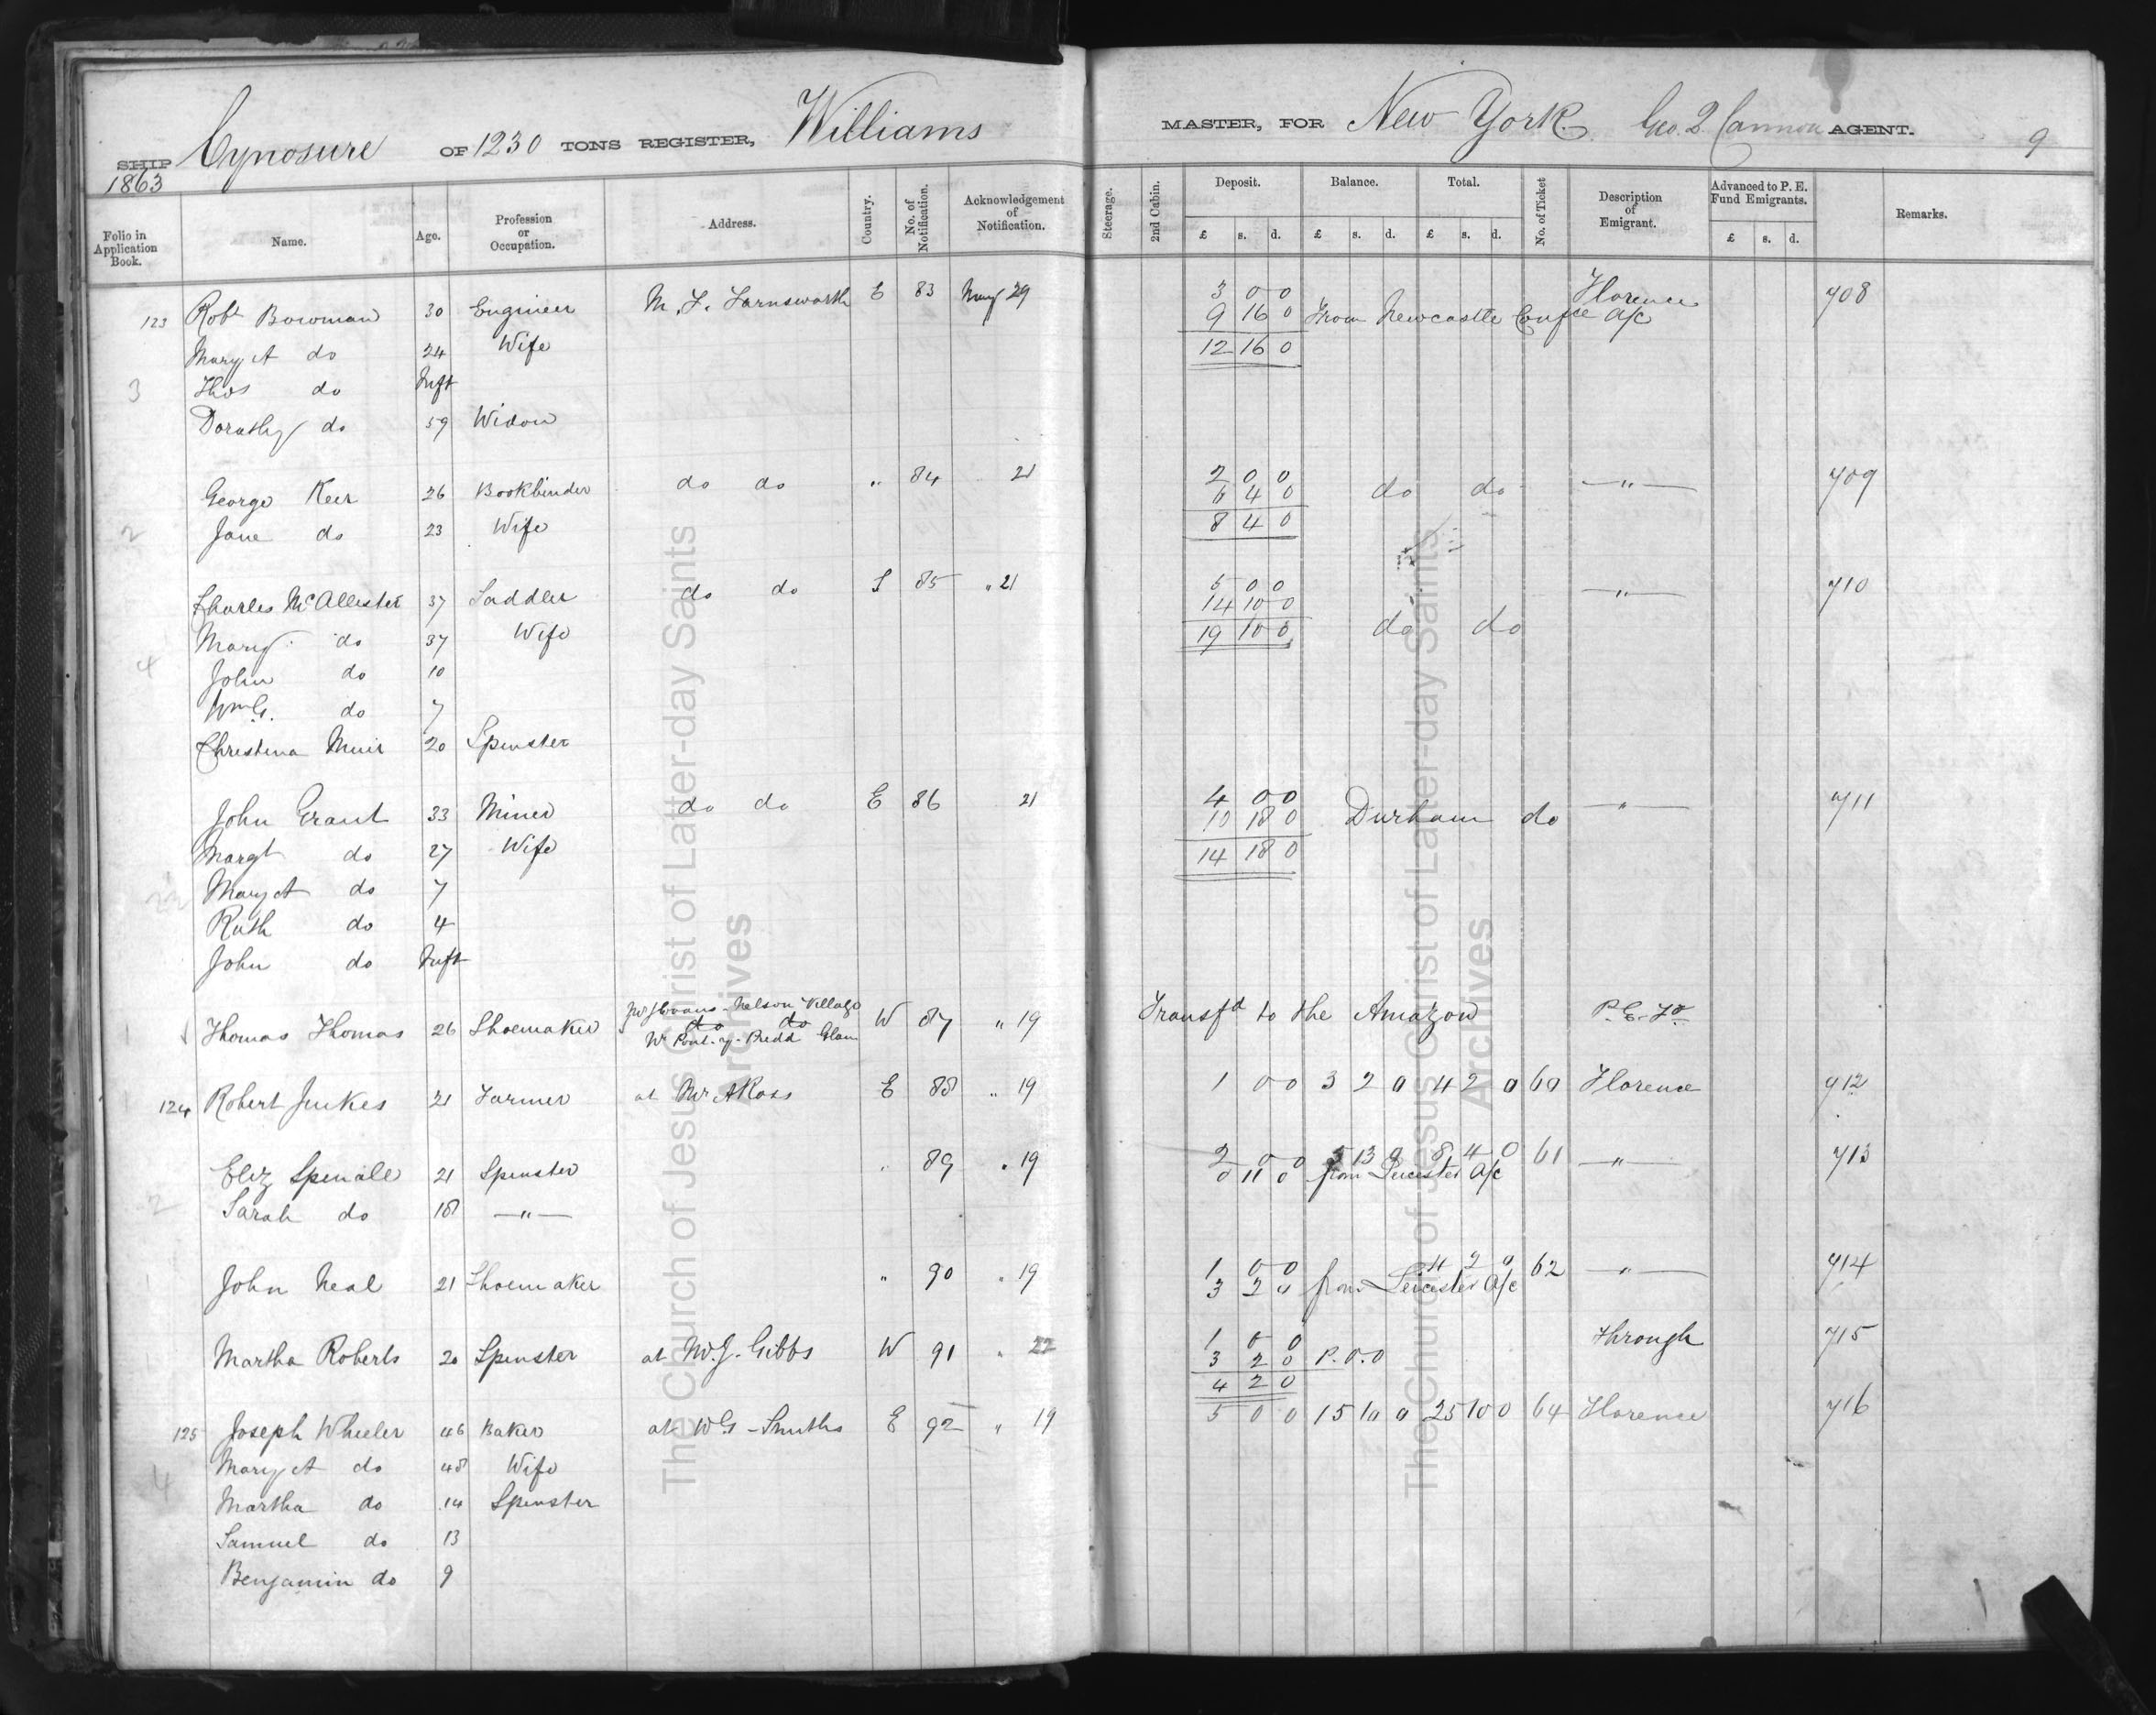 SHIP Cynosure OF 1230 TONS REGISTER, Williams MASTER, FOR New York. Geo. Q Cannon AGENT. 9
1863
Folio in Application Book. Name. Age. Profession or Occupation. Address. Country. No. of Notification. Acknowledgement of Notification. Steerage. 2nd Cabin. Deposit. Balance. Total. No. of Ticket Description of Emigrant. Advanced to P. E. Fund Emigrants. Remarks.
£ s. d. £ s. d. £ s. d. £ s. d.
123 Robt Bowman 30 Engineer M. F. Farnsworth E 83 May 29 3 0 0 Florence 708
9 16 0 From Newcastle Confce a/c
Mary A do 24 Wife 12 16 0
3 Thos do Inft
Dorothy do 59 Widow
George Keer 26 Bookbinder do do " 84 21 2 0 0 — " — 709
6 4 0 do do
2 Jane do 23 Wife 8 4 0
Charles McAllister 37 Saddler do do S 85 " 21 5 0 0 — " — 710
14 10 0
Mary do 37 Wife 19 10 0 do do
4 John do 10
Wm G. do 7
Christina Muir 20 Spinster
John Grant 33 Miner do do E 86 21 4 0 0 — " — 711
10 18 0 Durham do
Margt do 27 Wife 14 18 0
Mary A do 7
Ruth do 4
John do Inft
Thomas Thomas 26 Shoemaker Nelson Village W 87 " 19 Transfd to the Amazon P. E. Fd
do do
Pont-y-Predd Glam
124 Robert Jukes 21 Farmer at Mr A Ross E 88 " 19 1 0 0 3 2 0 4 2 0 60 Florence 712
Eliz Spinall 21 Spinster " 89 " 19 2 0 0 5 13 0 8 4 0 61 — " — 713
0 11 0 from Leicester a/c
2 Sarah do 18 — " —
John Neal 21 Shoemaker " 90 " 19 1 0 0 4 2 0 62 — " — 714
3 2 0 from Leicester a/c
Martha Roberts 20 Spinster at W. J. Gibbs W 91 " 22 1 0 0 Through 715
3 2 0 P.O.O
4 2 0
125 Joseph Wheeler 46 Baker at W G Smiths E 92 " 19 5 0 0 15 10 0 25 10 0 64 Florence 716
4 Mary A do 48 Wife
Martha do 14 Spinster
Samuel do 13
Benjamin do 9
The Church of Jesus Christ of Latter-day Saints
Archives
The Church of Jesus Christ of Latter-day Saints
Archives